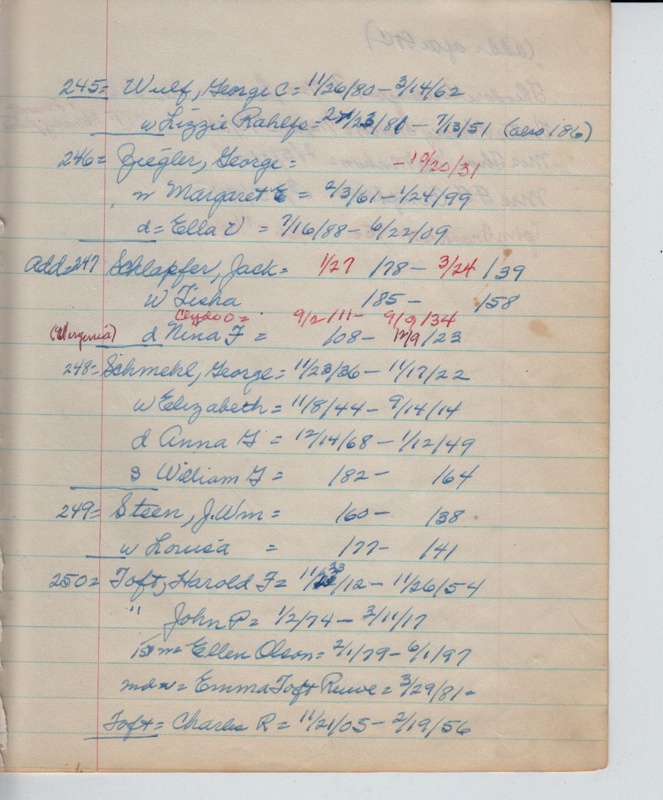 245= Wulf, George C = 11/26/80 - 3/14/62
w Lizzie Rahlfs = /81 - 7/13/51 (also 186)
246= Ziegler, George = - 10/20/31
w Margaret E = 2/3/61 - 1/24/99
d = Ella V = 7/16/88 - 6/22/09
Add=247 Schlapfer, Jack = 1/27 /78 - 3/24 /39
w Tisha /85 - /58
Clyde O = 9/2/11 - 9/9/34
(Virginia) d Nina F = /08 - 12/9 /23
248= Schmehl, George = 11/23/36 - 11/17/22
w Elizabeth = 11/8/44 - 9/14/14
d Anna G = 12/14/68 - 1/12/49
s William G = /82 - /64
249= Steen, J. Wm = /60 - /38
w Louisa = /77 - /41
250= Toft, Harold F = 11/23/12 - 11/26/54
" John P = 1/2/74 - 3/11/17
1st m = Ellen Olson = 2/1/79 - 6/1/97
Emma Toft Ruwe = 3/29/81 -
Toft = Charles R = 11/21/05 - 2/19/56